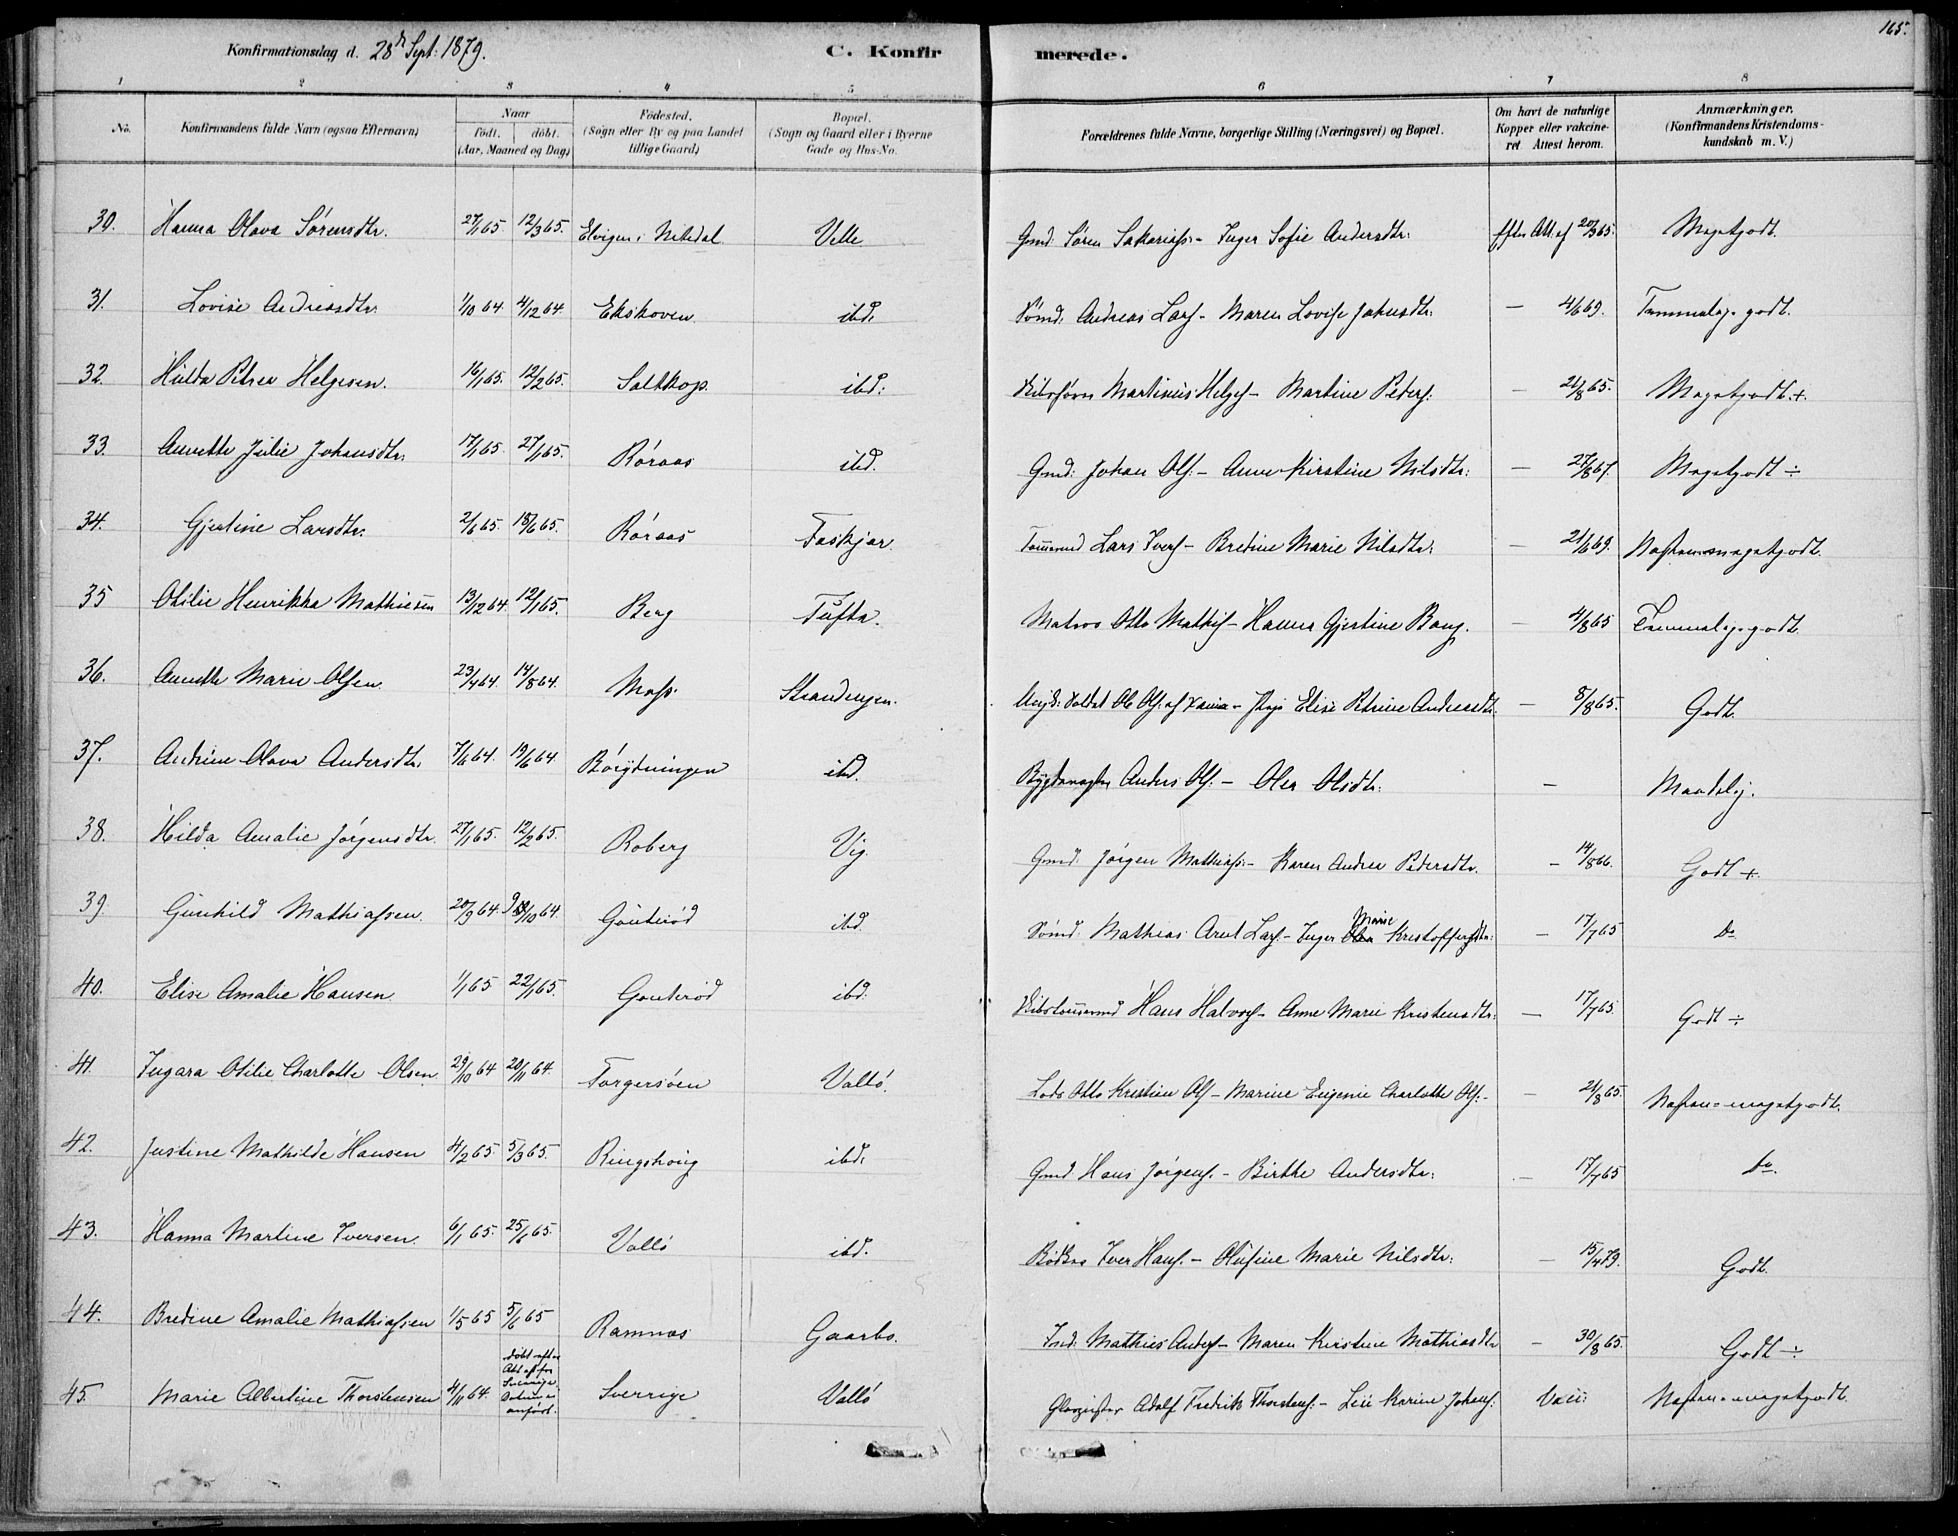 165.
Konfirmationsdag d. 28de Sept: 1879. C. Konfirmerede.
1 2 3 4 5 6 7 8
No. Konfirmandens fulde Navn (ogsaa Efternavn) Naar født. døbt. (Aar, Maaned og Dag) Fødested. (Sogn eller By og paa Landet tillige Gaard) Bopæl. (Sogn og Gaard eller i Byerne Gade og Hus-No. Forældrenes fulde Navne, borgerlige Stilling (Næringsvei) og Bopæl. Om havt de naturlige Kopper eller vakcineret. Attest herom. Anmærkninger. (Konfirmandens Kristendomskundskab m. V.)
30. Hanna Olava Sørensdtr. 27/1 65. 12/3 65. Elvigen i Nitedal Velle Gmd. Søren Sakariass: - Inger Sofie Andersdtr: efter Att. af 20/3 65. Megetgodt.
31. Lovise Andreasdtr. 1/10 64 4/12 64. Ekskoven ibd. Sømd: Andreas Lars - Maren Lovise Johnsdtr: — 4/6 69. Temmelig godt.
32. Hulda Petrea Helgesen. 16/1 65. 12/2 65. Saltkop ibd: Martinius Helges - Martine Peders: — 21/8 65. Megetgodt +
33. Annette Julie Johansdtr. 17/1 65. 27/1 65. Røraas ibd. Gmd: Johan Ols: - Anne Kirstine Nilsdtr: — 27/8 67. Megetgodt ÷
34. Gjertine Larsdtr. 2/6 65. 18/6 65. Røraas Faskjær Tømmermd Lars Ivers - Bredine Marie Nilsdtr: — 21/6 69. Næsten megetgodt.
35 Otilie Henrikka Mathiesen 13/12 64. 12/1 65. Berg Tufte. Matros Otto Mathis - Hanna Gjertine Bang. — 4/8 65 Temmelig godt.
36. Annette Marie Olsen 23/4 64. 14/8 64. Moss Strandengen. Ole Ols: af - Elise Petrine Andreasdtr. — 8/8 65. Godt.
37. Andrine Olava Andersdtr. 7/6 64. 19/6 64. Bøigdningen ibd. Bygdevægter Anders Ols: - Olea Olsdtr: — Maadelig.
38. Hilda Amalie Jørgensdtr. 27/1 65. 12/2 65. Roberg Vig. Gmd. Jørgen Mathiass: - Karen Andrea Pedersdtr. — 14/8 66. Godt +
39 Gunhild Mathiassen. 20/9 64 9/10 64. Gouterød ibd Sømd. Mathias Arnt Lars. - Inger Marie Kristoffersdtr: — 17/7 65 Do
40. Elise Amalie Hansen 1/1 65 22/1 65. Gouterød ibd. Skibstømmermd Hans Halvors - Anne Marie Kristensdtr: — 17/7 65. Godt ÷
41. Ingara Otilie Charlotte Olsen 29/10 64 20/11 64. Torgersøen Vallø. Lods Otto Kristian Ols - Marine Eugenie Charlotte Ols: — 21/8 65. Næsten megetgodt.
42. Justine Mathilde Hansen 4/2 65 5/3 65. Ringshoug ibd: Gmd Hans Jørgens. - Birthe Andersdtr: — 17/7 65 Do.
43. Hanna Martine Iversen. 6/1 65. 25/6 65. Vallø ibd. Bødker Iver Hans. - Olufine Marie Nilsdtr: — 15/4 79. Godt.
44. Bredine Amalie Mathiassen 1/5 65 5/6 65 Ramnæs Gaarbo. Inds. Mathias Anders - Maren Kirstine Mathiasdtr — 30/8 65. Godt ÷
45. Marie Albertine Thorstensen 4/11 64. døbt efter Att. fra Sverrige, Datum ei anført. Sverrige Vallø Glarmester Adolf Fredrik Thorstens: - Karine Johans: Vacc: Næsten megetgodt.